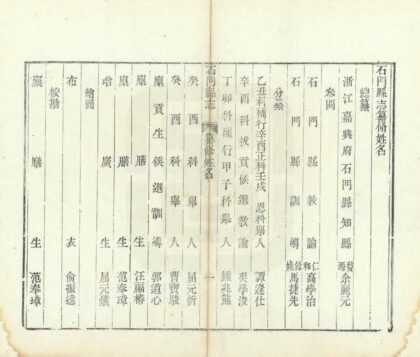 石門縣志纂脩姓名
總纂
浙江嘉興府石門縣知縣 余麗元
參閱
石門縣教諭 仁和 高學治
石門縣訓導 馬捷先
分纂
乙丑科補行辛酉正科壬戌恩科舉人 譚逢仕
辛酉科拔貢候選教諭 吳學浚
丁卯科補行甲子科舉人 鍾兆熊
石門縣志 纂脩姓名 一
癸酉科舉人 屈元炘
癸酉科舉人 曹寶駿
廩貢生候選訓導 郭道心
廩膳生 汪福椿
廩膳生 范奉璋
增廣生 屈元爔
繪圖
布衣 俞振遠
校勘
廩膳生 范奉璋